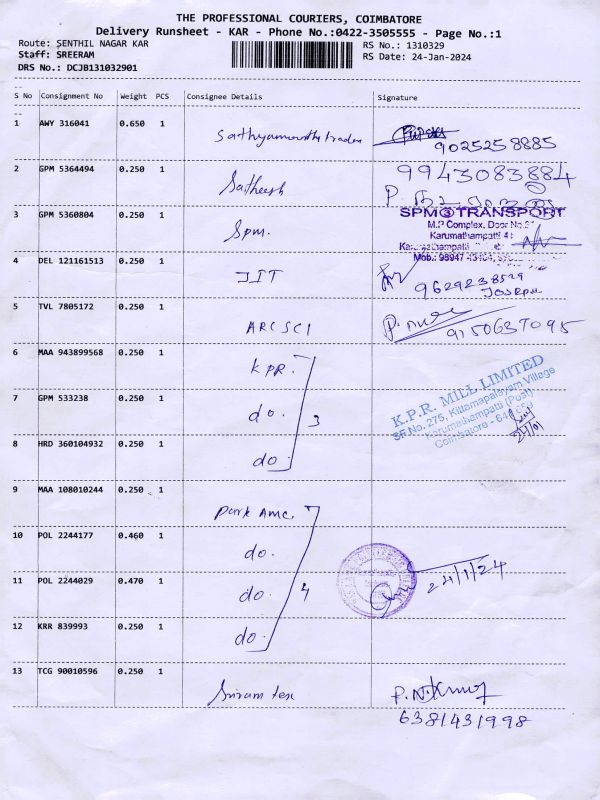 THE PROFESSIONAL COURIERS, COIMBATORE
Delivery Runsheet - KAR - Phone No.:0422-3505555 - Page No.:1
Route: SENTHIL NAGAR KAR
RS No.: 1310329
Staff: SREERAM
RS Date: 24-Jan-2024
DRS No.: DCJB131032901
S No Consignment No Weight PCS Consignee Details Signature
1 AWY 316041 0.650 1
9025258885
2 GPM 5364494 0.250 1 Satheesh 9943083884
3 GPM 5360804 0.250 1 Spm. SPM TRANSPORT
M.P Complex, Door No.
Karumathampatti
4 DEL 121161513 0.250 1 JIT
9629238529
JOSEPH
5 TVL 7805172 0.250 1 ARCSCI
9150637095
6 MAA 943899568 0.250 1 KPR.
7 GPM 533238 0.250 1 do. 3 K.P.R. MILL LIMITED
SF.No. 275, Kittampalayam Village
Karumathampatti (Post)
Coimbatore - 641
8 HRD 360104932 0.250 1 do.
9 MAA 108010244 0.250 1 Park Amc.
10 POL 2244177 0.460 1 do.
11 POL 2244029 0.470 1 do. 4 24/1/24
12 KRR 839993 0.250 1 do.
13 TCG 90010596 0.250 1 Sriram tex
6381431998